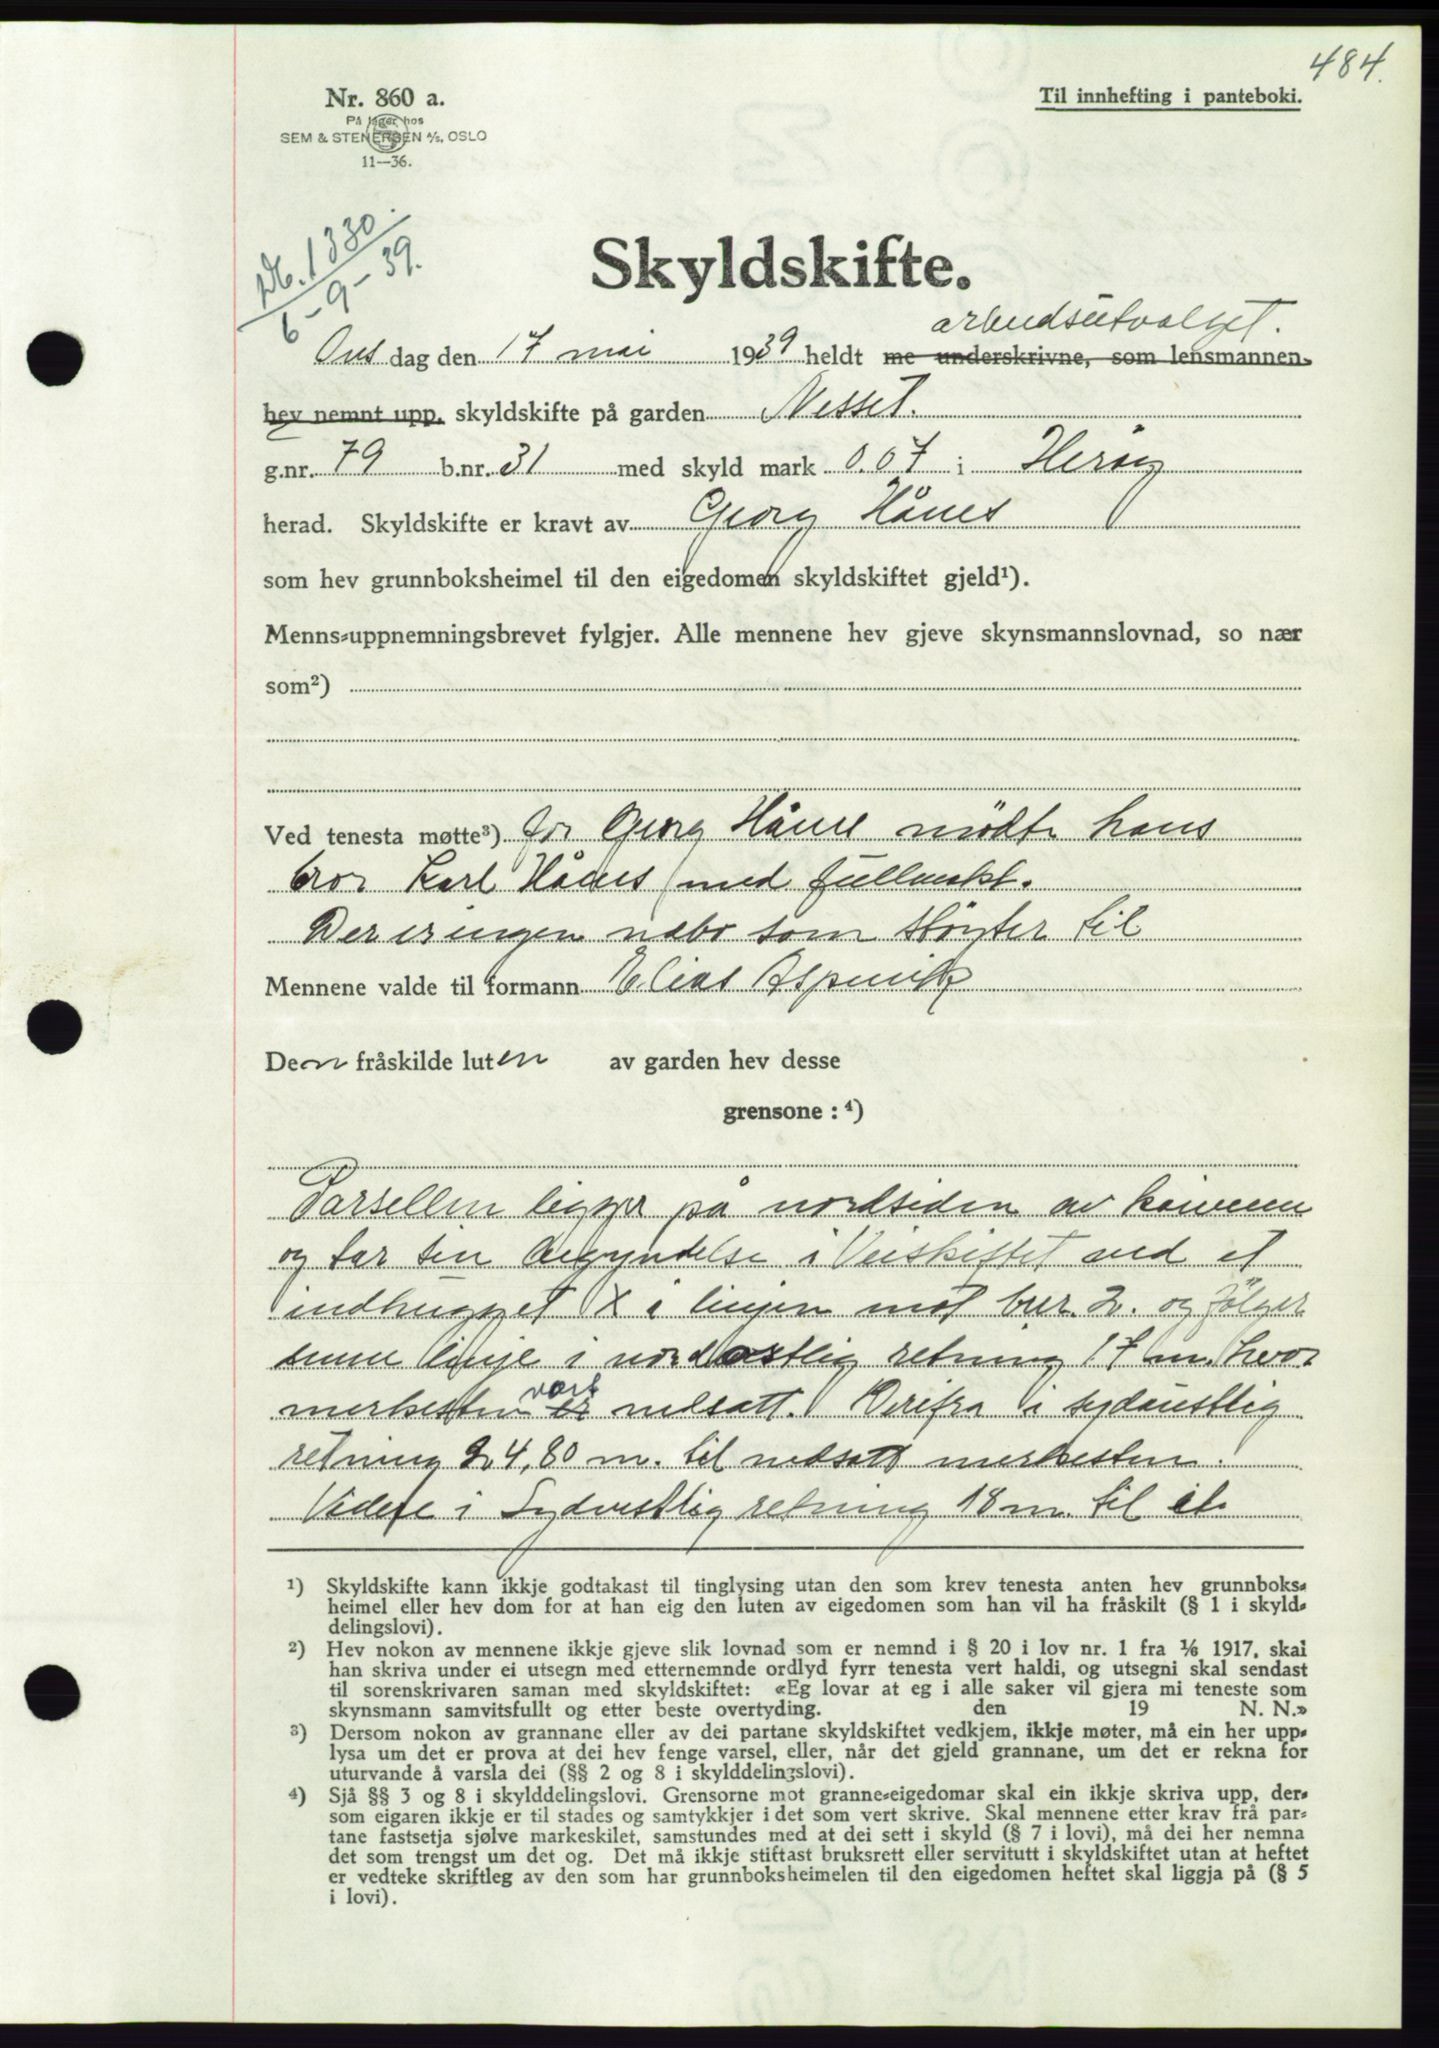 484.
Nr. 860 a.
På lager hos
SEM & STENERSEN A/S, OSLO
11—36.
Til innhefting i panteboki.
Nb. 1330.
6-9-39.
Skyldskifte.
arbeidsutvalget.
Ons dag den 17 mai 1939 heldt me underskrivne, som lensmannen
hev nemnt upp, skyldskifte på garden Nesset.
g.nr. 79 b.nr. 31 med skyld mark 0.07 i Herøy
herad. Skyldskifte er kravt av Georg Hånes
som hev grunnboksheimel til den eigedomen skyldskiftet gjeld¹).
Menns-uppnemningsbrevet fylgjer. Alle mennene hev gjeve skynsmannslovnad, so nær
som²)
Ved tenesta møtte³) for Georg Hånes mødte hans
bror Karl Hånes med fullmakt.
Der er ingen nabo som støyter til
Mennene valde til formann Elias Aspevik
Den fråskilde luten av garden hev desse
grensone : ⁴)
Parsellen ligger på nordsiden av
og tar sin begyndelse i Veiskiftet ved et
indhugget X i linjen mot bnr. 2. og følger
denne linje i nordostlig retning 17 m. hvor
vart
merkesten er nedsatt. Derifra i sydaustlig
retning 24,80 m. til nedsatt merkesten.
Videre i Sydvestlig retning 18 m. til et
¹) Skyldskifte kann ikkje godtakast til tinglysing utan den som krev tenesta anten hev grunnboks-
heimel eller hev dom for at han eig den luten av eigedomen som han vil ha fråskilt (§ 1 i skyld-
delingslovi).
²) Hev nokon av mennene ikkje gjeve slik lovnad som er nemnd i § 20 i lov nr. 1 fra 1/6 1917, skal
han skriva under ei utsegn med etternemnde ordlyd fyrr tenesta vert haldi, og utsegni skal sendast
til sorenskrivaren saman med skyldskiftet: «Eg lovar at eg i alle saker vil gjera mi teneste som
skynsmann samvitsfullt og etter beste overtyding. den 19 N. N.»
³) Dersom nokon av grannane eller av dei partane skyldskiftet vedkjem, ikkje møter, må ein her upp-
lysa um det er prova at dei hev fenge varsel, eller, når det gjeld grannane, um det er rekna for
uturvande å varsla dei (§§ 2 og 8 i skylddelingslovi).
⁴) Sjå §§ 3 og 8 i skylddelingslovi. Grensorne mot granne-eigedomar skal ein ikkje skriva upp, der-
som eigaren ikkje er til stades og samtykkjer i det som vert skrive. Skal mennene etter krav frå par-
tane fastsetja sjølve markeskilet, samstundes med at dei sett i skyld (§ 7 i lovi), må dei her nemna
det som trengst um det og. Det må ikkje stiftast bruksrett eller servitutt i skyldskiftet utan at heftet
er vedteke skriftleg av den som har grunnboksheimelen til den eigedomen heftet skal liggja på (§ 5
i lovi).